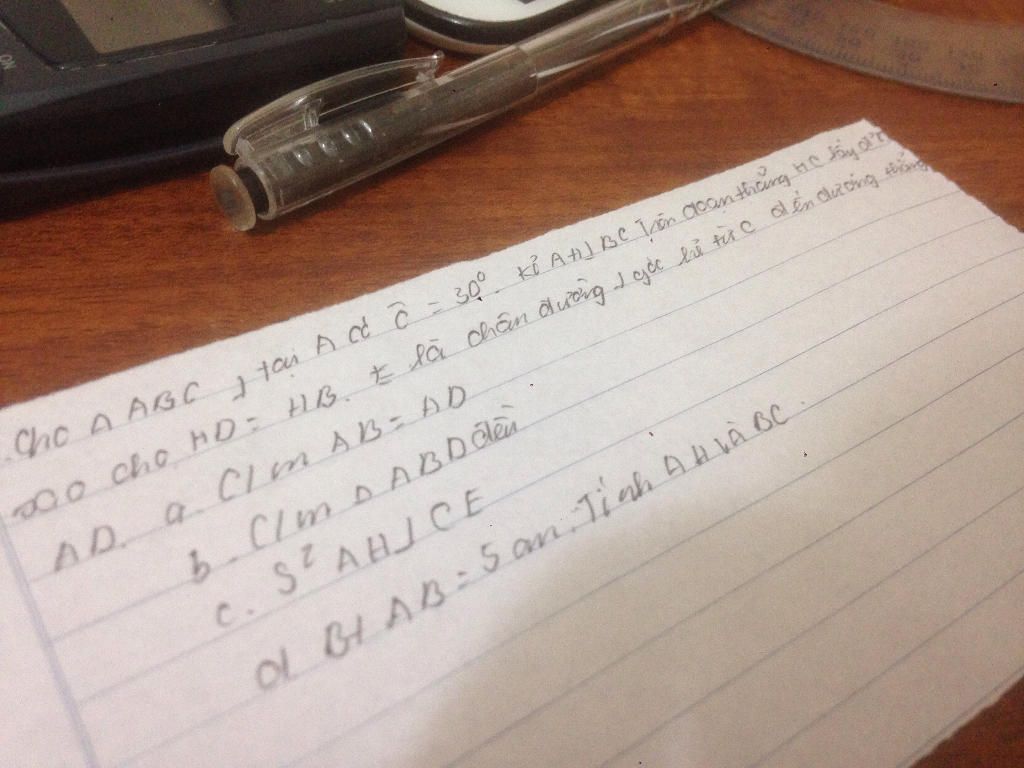 Cho Δ ABC ⊥ tại A có Ĉ = 30°. Kẻ AH ⊥ BC Trên đoạn thẳng HC lấy
sao cho HD = HB. E là chân đường ⊥ góc kẻ từ C đến đường thẳng
AD. a. C/m AB = AD
b. C/m Δ ABD đều
c. S² AH ⊥ CE
d Bt AB = 5 cm. Tính AH và BC.